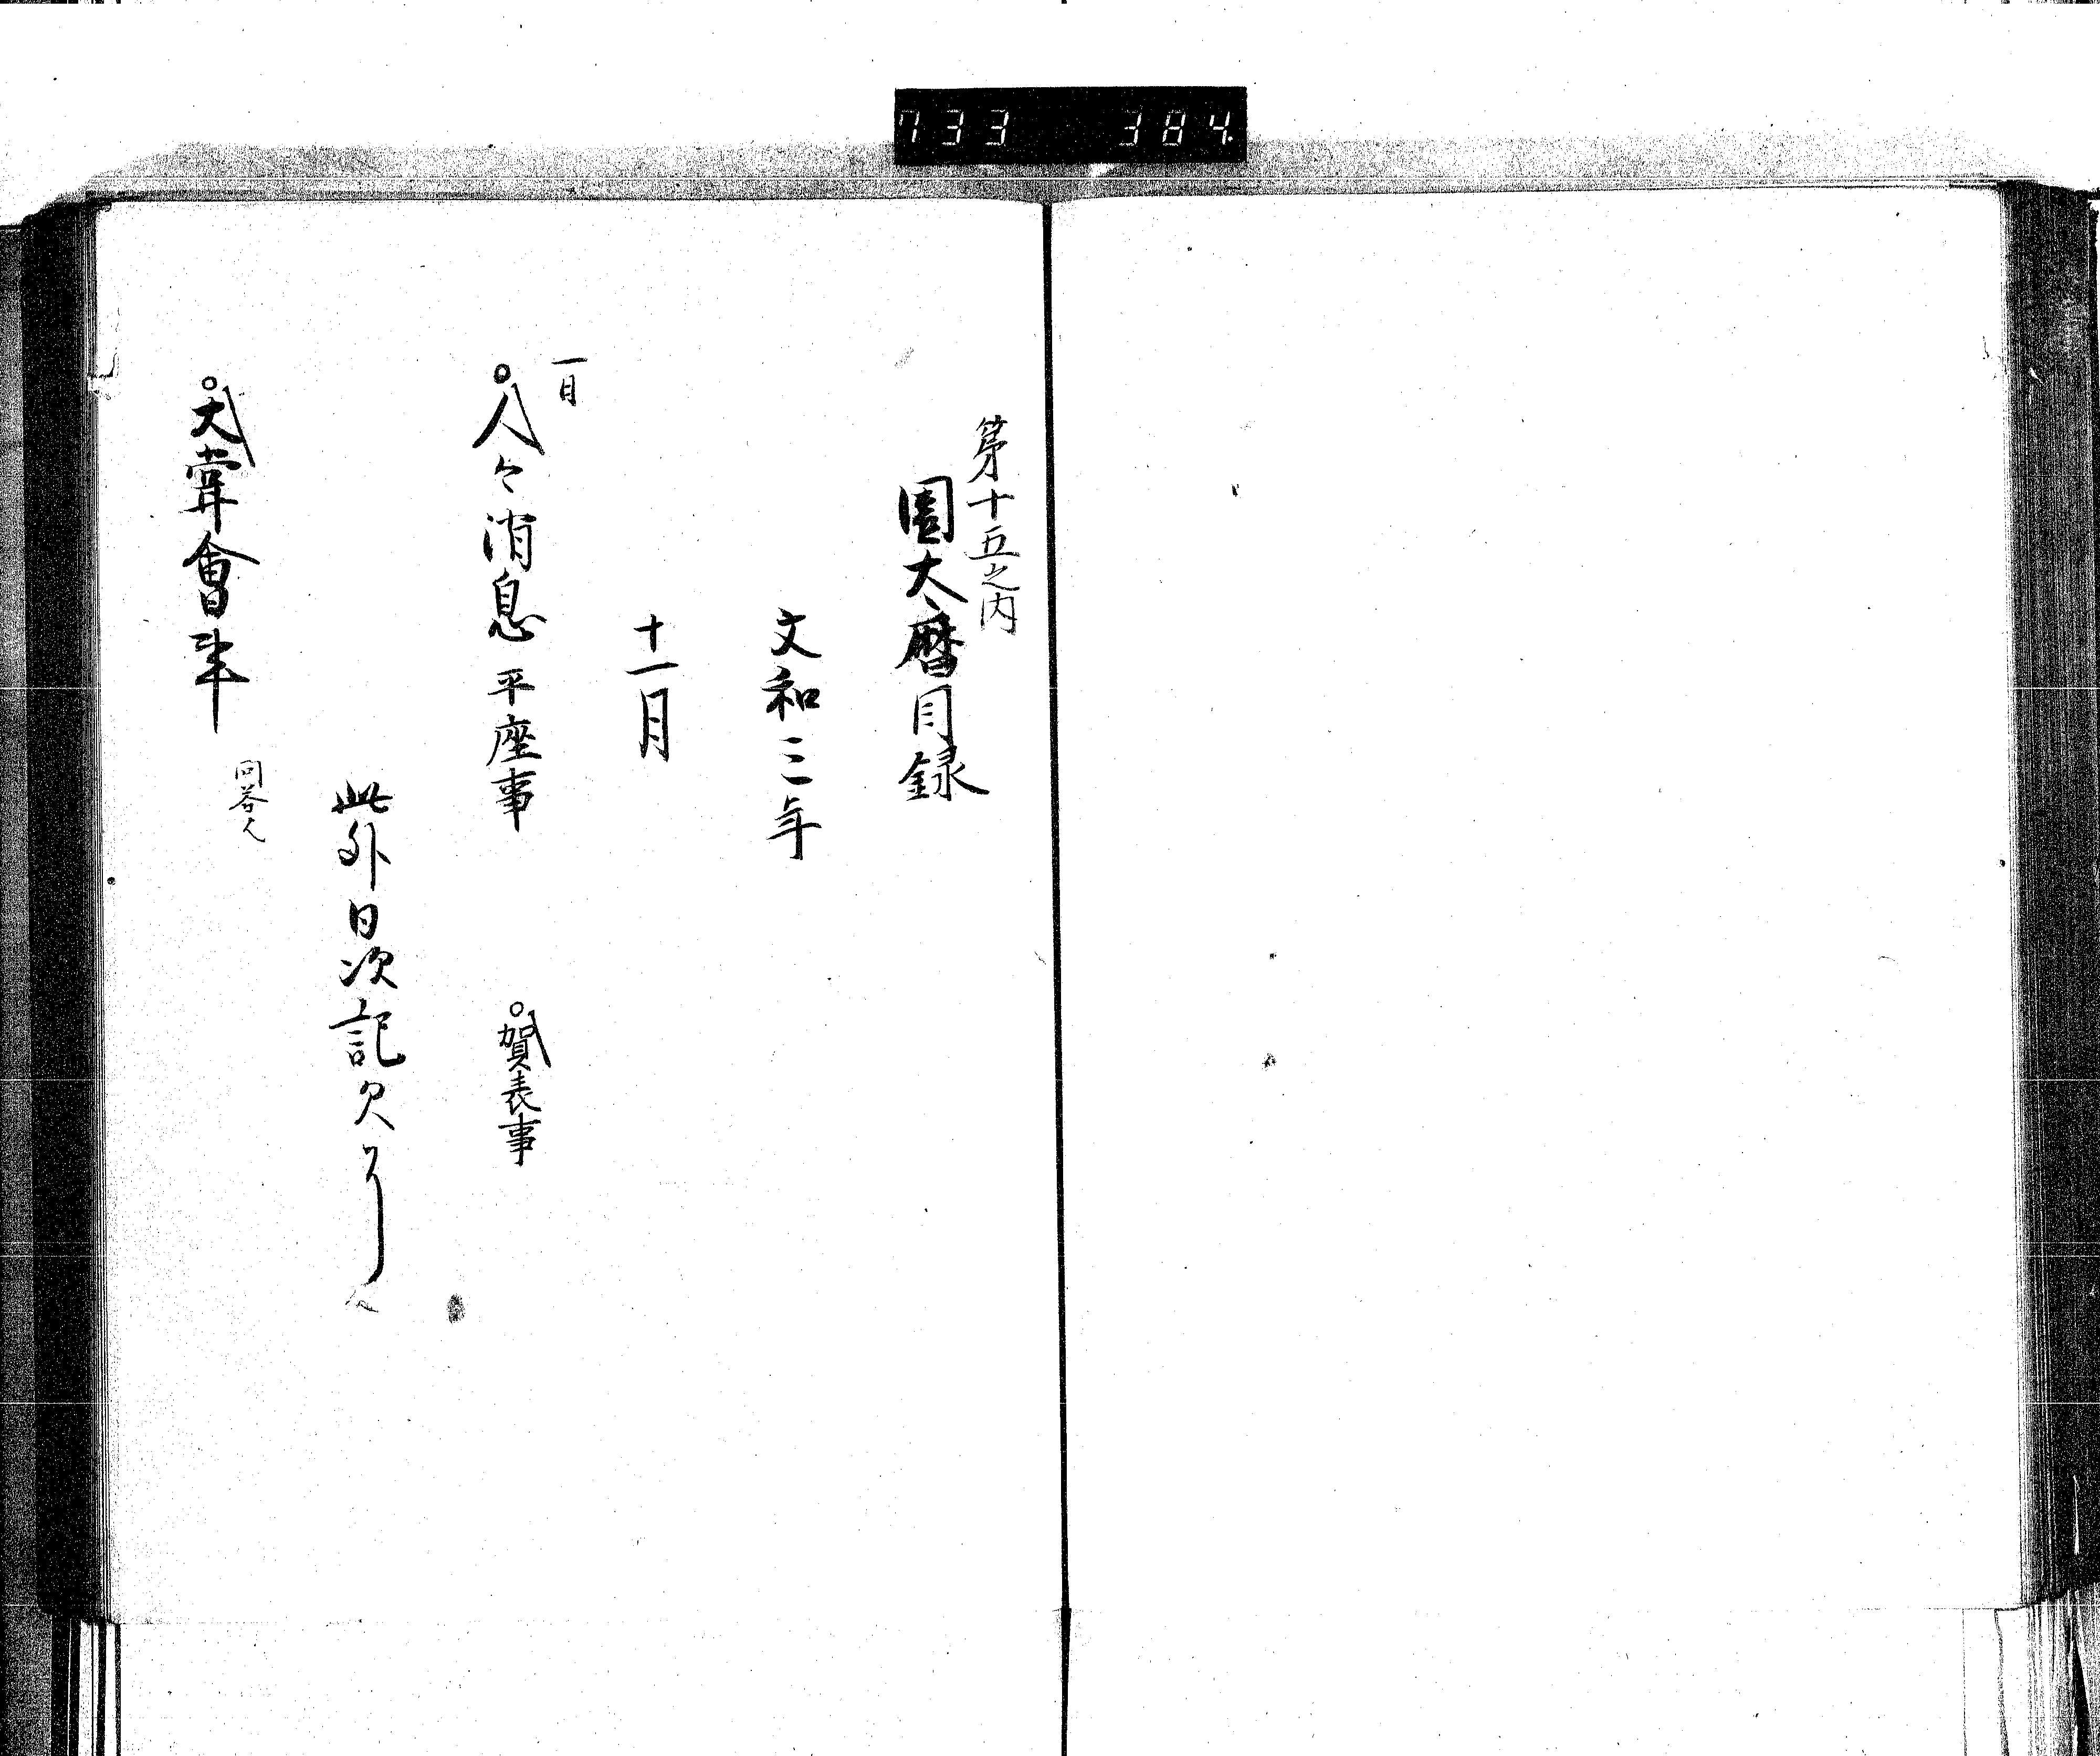 733 384
第十五之内
園太暦目録
文和三年
十一月
一日
人々消息 平座事 賀表事
此外日次記欠
大嘗會事
問答